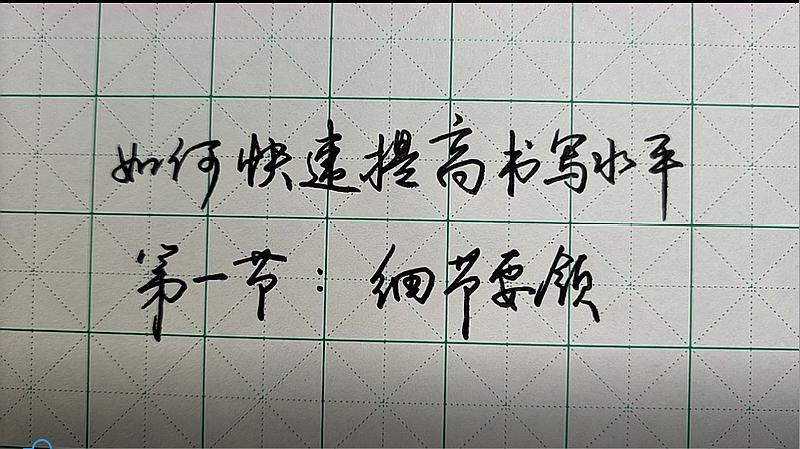 如何快速提高书写水平
第一节：细节要领